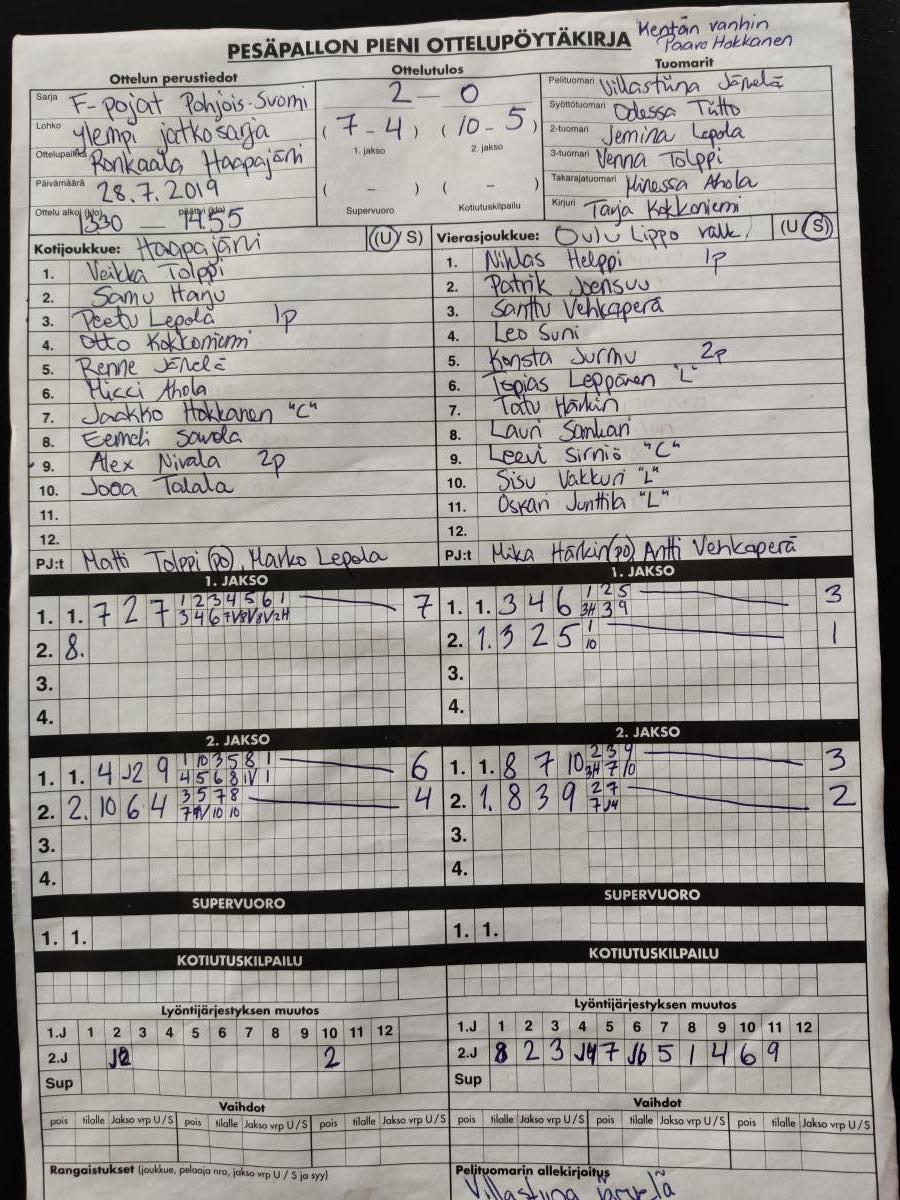 Kentän vanhin
Paavo Hokkanen
PESÄPALLON PIENI OTTELUPÖYTÄKIRJA
Ottelun perustiedot
Sarja F-pojat Pohjois-Suomi
Lohko ylempi jatkosarja
Ottelupaikka Ronkaala, Haapajärvi
Päivämäärä 28.7.2019
Ottelu alkoi (klo) 1330 — päättyi (klo) 14.55
Ottelutulos
2 - 0
( 7 - 4 ) ( 10 - 5 )
1. jakso 2. jakso
( - ) ( - )
Supervuoro Kotiutuskilpailu
Tuomarit
Pelituomari Villastiina Järvelä
Syöttötuomari Odessa Tiitto
2-tuomari Jemina Lepola
3-tuomari Venna Tolppi
Takarajatuomari Minessa Ahola
Kirjuri Tarja Kokkoniemi
Kotijoukkue: Haapajärvi (U/S)
1. Veikka Tolppi
2. Samu Harju
3. Peetu Lepola 1p
4. Otto Kokkoniemi
5. Renne Järvelä
6. Micci Ahola
7. Jaakko Hokkanen "C"
8. Eemeli Savola
9. Alex Nivala 2p
10. Jooa Talala
11.
12.
PJ:t Matti Tolppi (po), Marko Lepola
Vierasjoukkue: Oulu Lippo valk. (U/S)
1. Niklas Helppi 1p
2. Patrik Joensuu
3. Santtu Vehkaperä
4. Leo Suni
5. Konsta Jurmu 2p
6. Topias Leppänen "L"
7. Tatu Härkin
8. Lauri Sankari
9. Leevi Sirniö "C"
10. Sisu Vakkuri "L"
11. Oskari Junttila "L"
12.
PJ:t Mika Härkin (po), Antti Vehkaperä
1. JAKSO
1. 1. 7 2 7 1 2 3 4 5 6 1 7
2. 8.
3.
4.
1. JAKSO
1. 1. 3 4 6 1 2 5 3
3H 3 9
2. 1. 3 2 5 1 1
10
3.
4.
2. JAKSO
1. 1. 4 J2 9 1 10 3 5 8 1 6
2. 2. 10 6 4 3 5 7 8 4
3.
4.
2. JAKSO
1. 1. 8 7 10 2 3 9 3
3H 7 10
2. 1. 8 3 9 2 7 2
7 J4
3.
4.
SUPERVUORO
1. 1.
SUPERVUORO
1. 1.
KOTIUTUSKILPAILU
KOTIUTUSKILPAILU
Lyöntijärjestyksen muutos
1.J 1 2 3 4 5 6 7 8 9 10 11 12
2.J 2
Sup
Lyöntijärjestyksen muutos
1.J 1 2 3 4 5 6 7 8 9 10 11 12
2.J 8 2 3 J4 7 J6 5 1 4 6 9
Sup
Vaihdot
pois tilalle Jakso vrp U/S pois tilalle Jakso vrp U/S pois tilalle Jakso vrp U/S
Vaihdot
pois tilalle Jakso vrp U/S pois tilalle Jakso vrp U/S pois tilalle Jakso vrp U/S
Rangaistukset (joukkue, pelaaja nro, jakso vrp U / S ja syy)
Pelituomarin allekirjoitus
Villastiina Järvelä